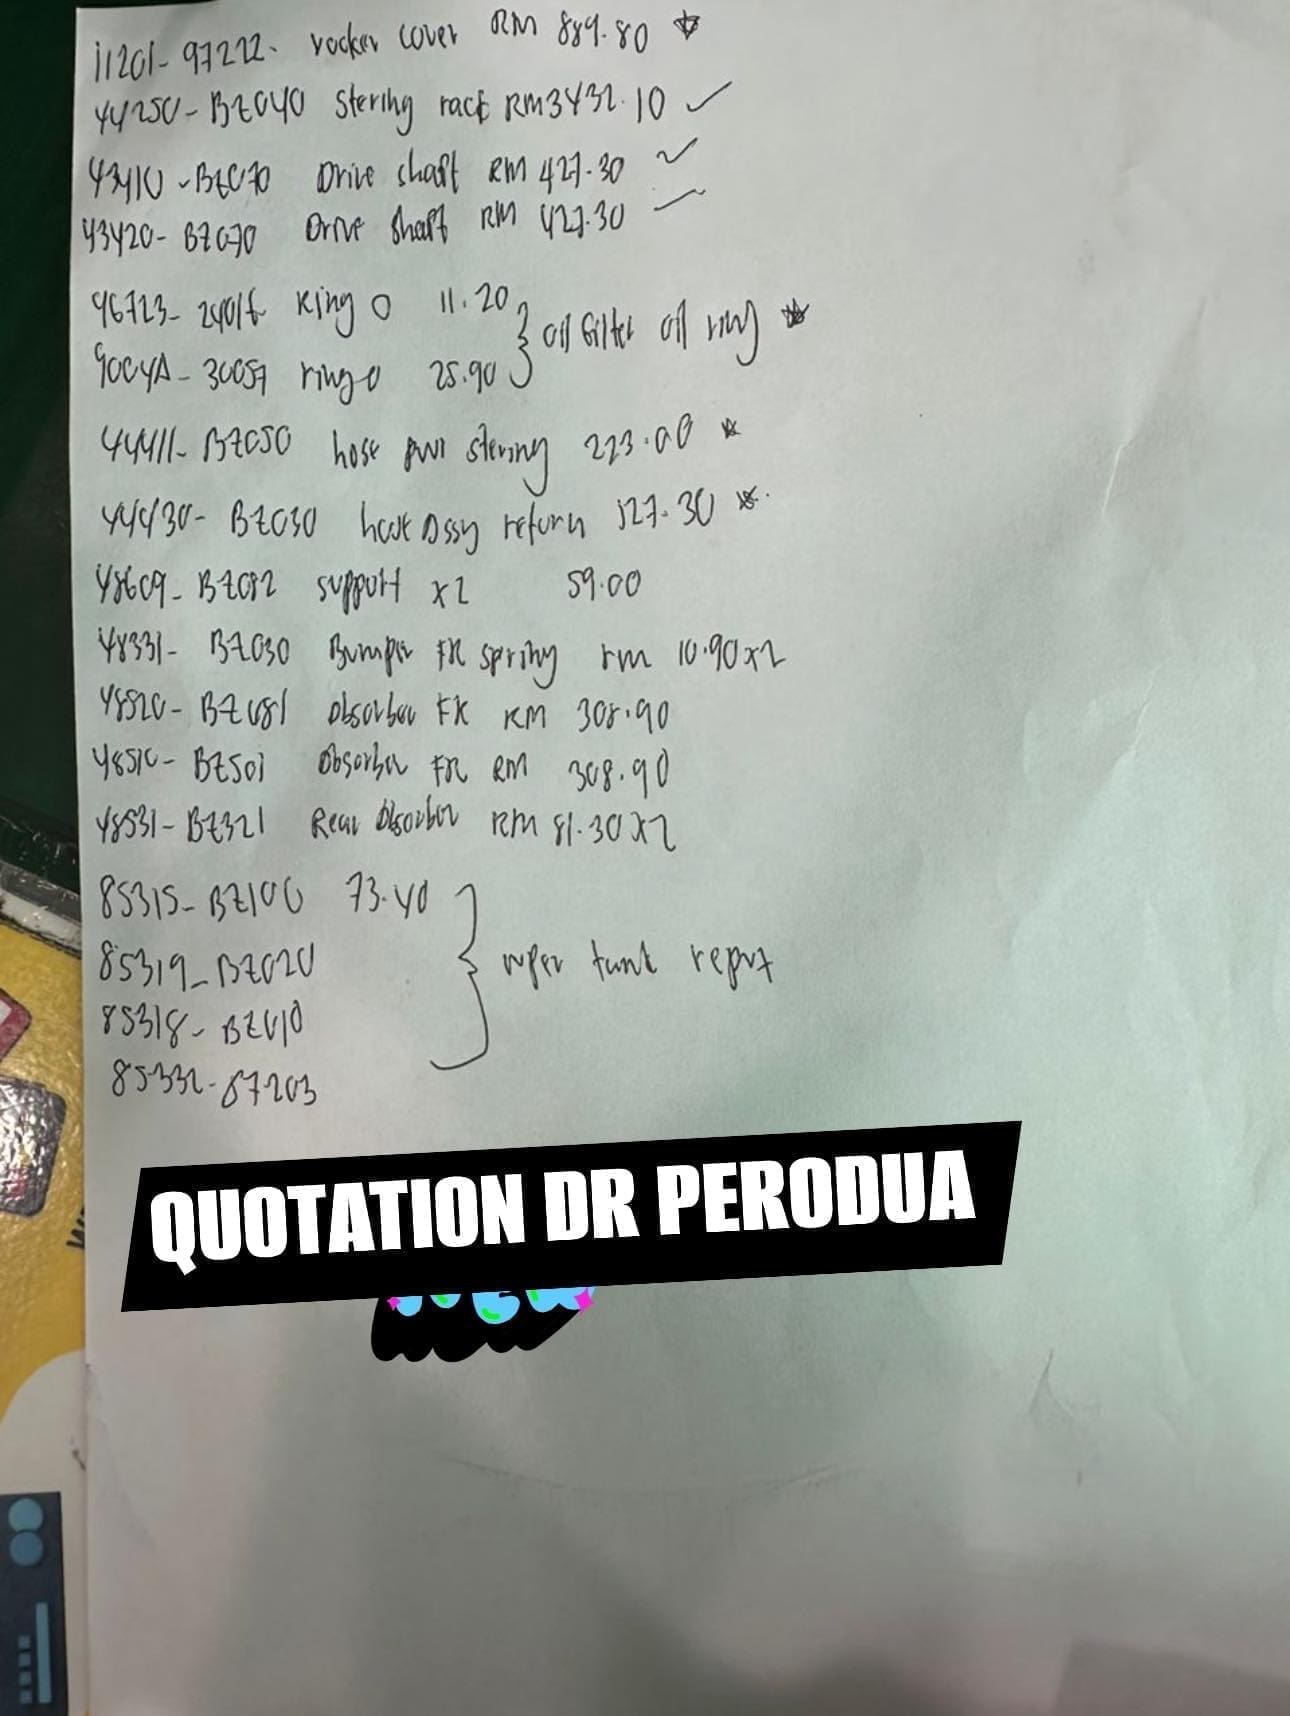 11201-97222. rocker cover RM 889.80
44250-BZ040 Stering rack RM3432.10 ✓
43410-BZ070 Drive shaft RM 427.30 ✓
43420-BZ070 Drive shaft RM 427.30
96723-24016 Ring O 11.20
oil filter oil ring
9004A-30059 ring o 25.90
44411-BZ050 hose pwr stering 223.00
44430-BZ030 hose Assy return 127.30
48609-BZ082 support x2 59.00
48331-BZ030 Bumper FR spring rm 10.90x2
48520-BZ081 Absorber FR RM 308.90
48510-BZ501 Absorber FR RM 308.90
48531-BZ321 Rear Absorber RM 81.30x2
85315-BZ100 73.40
85319-BZ020
tank
85318-BZ010
85332-87203
QUOTATION DR PERODUA